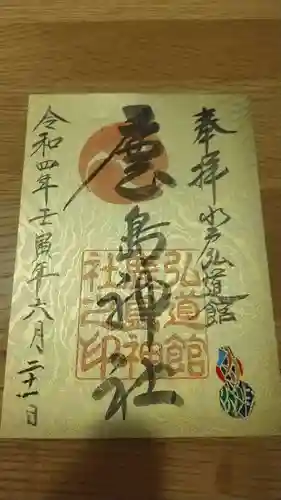 奉拝
水戸弘道館
鹿島神社
弘道館
鹿島神
社之印
令和四年壬寅年六月二十一日